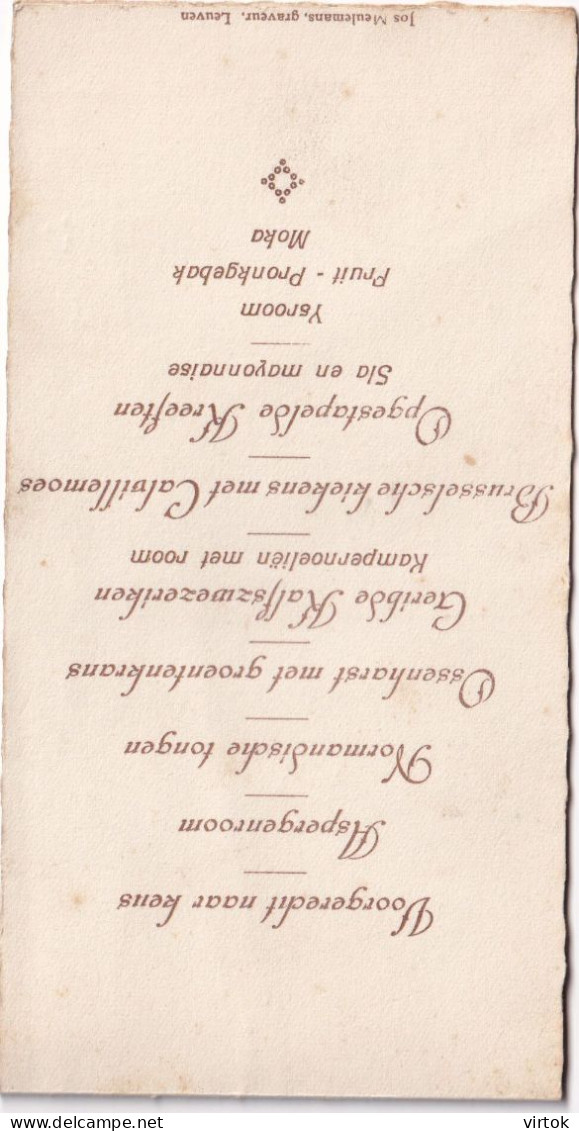 Voorgerecht naar keus
Aspergenroom
Normandische tongen
Ossenharst met groentenkrans
Geribde Kalfszwezeriken
Kampernoeliën met room
Brusselsche kiekens met Calvillemoes
Opgestapelde Kreeften
Sla en mayonnaise
Ysroom
Fruit - Pronkgebak
Moka
Jos Meulemans, graveur, Leuven
virtok